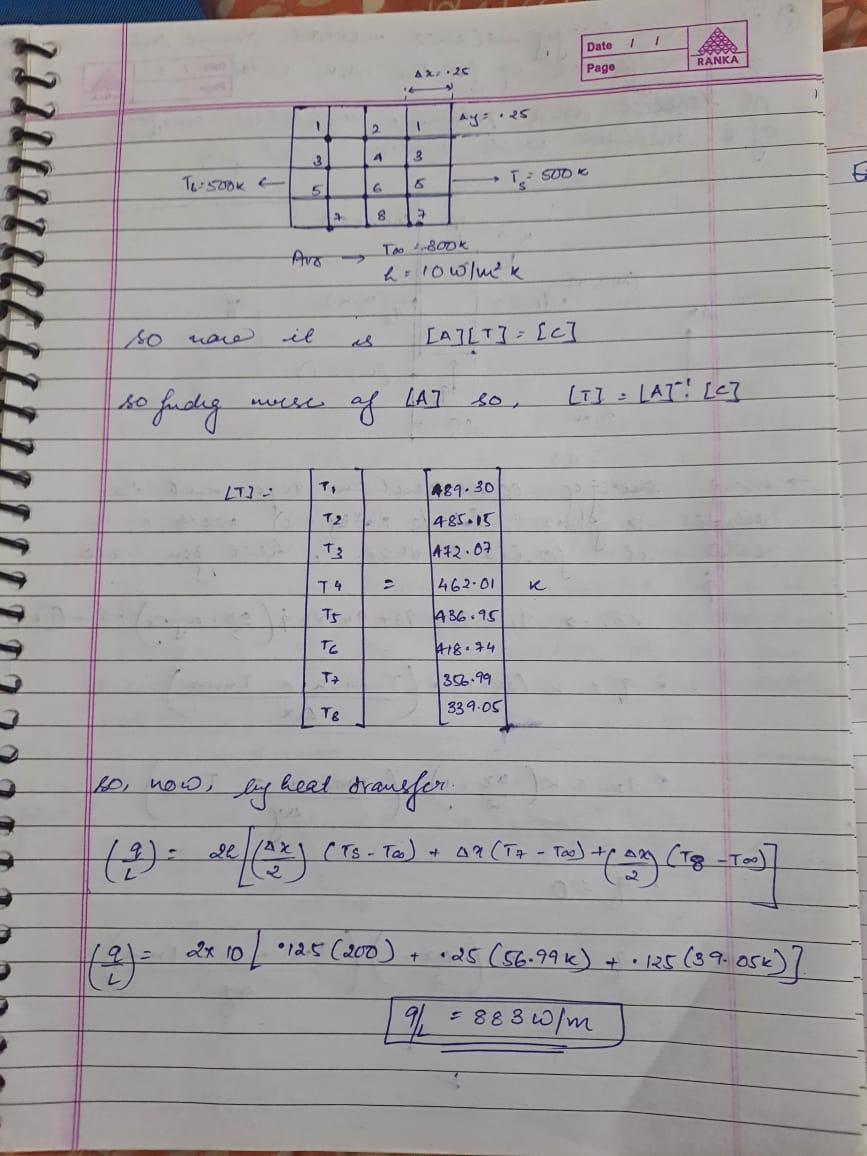 Date / /
RANKA
Page
Δx = .25
1 2 1 Δy = .25
3 4 3
Ts = 500K ← → Ts = 500K
5 6 5
7 8 7
→ T∞ = 300K
h = 10 W/m² K
so it is [A][T] = [C]
so of [A] so, [T] = [A]⁻¹ [C]
[T] =
T1 489.30
T2 485.15
T3 472.07
T4 = 462.01 K
T5 436.95
T6 418.74
T7 356.99
T8 339.05
so, now, by heat transfer.
(q/L) = 2h[(Δx/2) (Ts - T∞) + Δx (T7 - T∞) + (Δx/2) (T8 - T∞)]
(q/L) = 2x10 [ .125 (200) + .25 (56.99K) + .125 (39.05K)]
q/L = 883 W/m